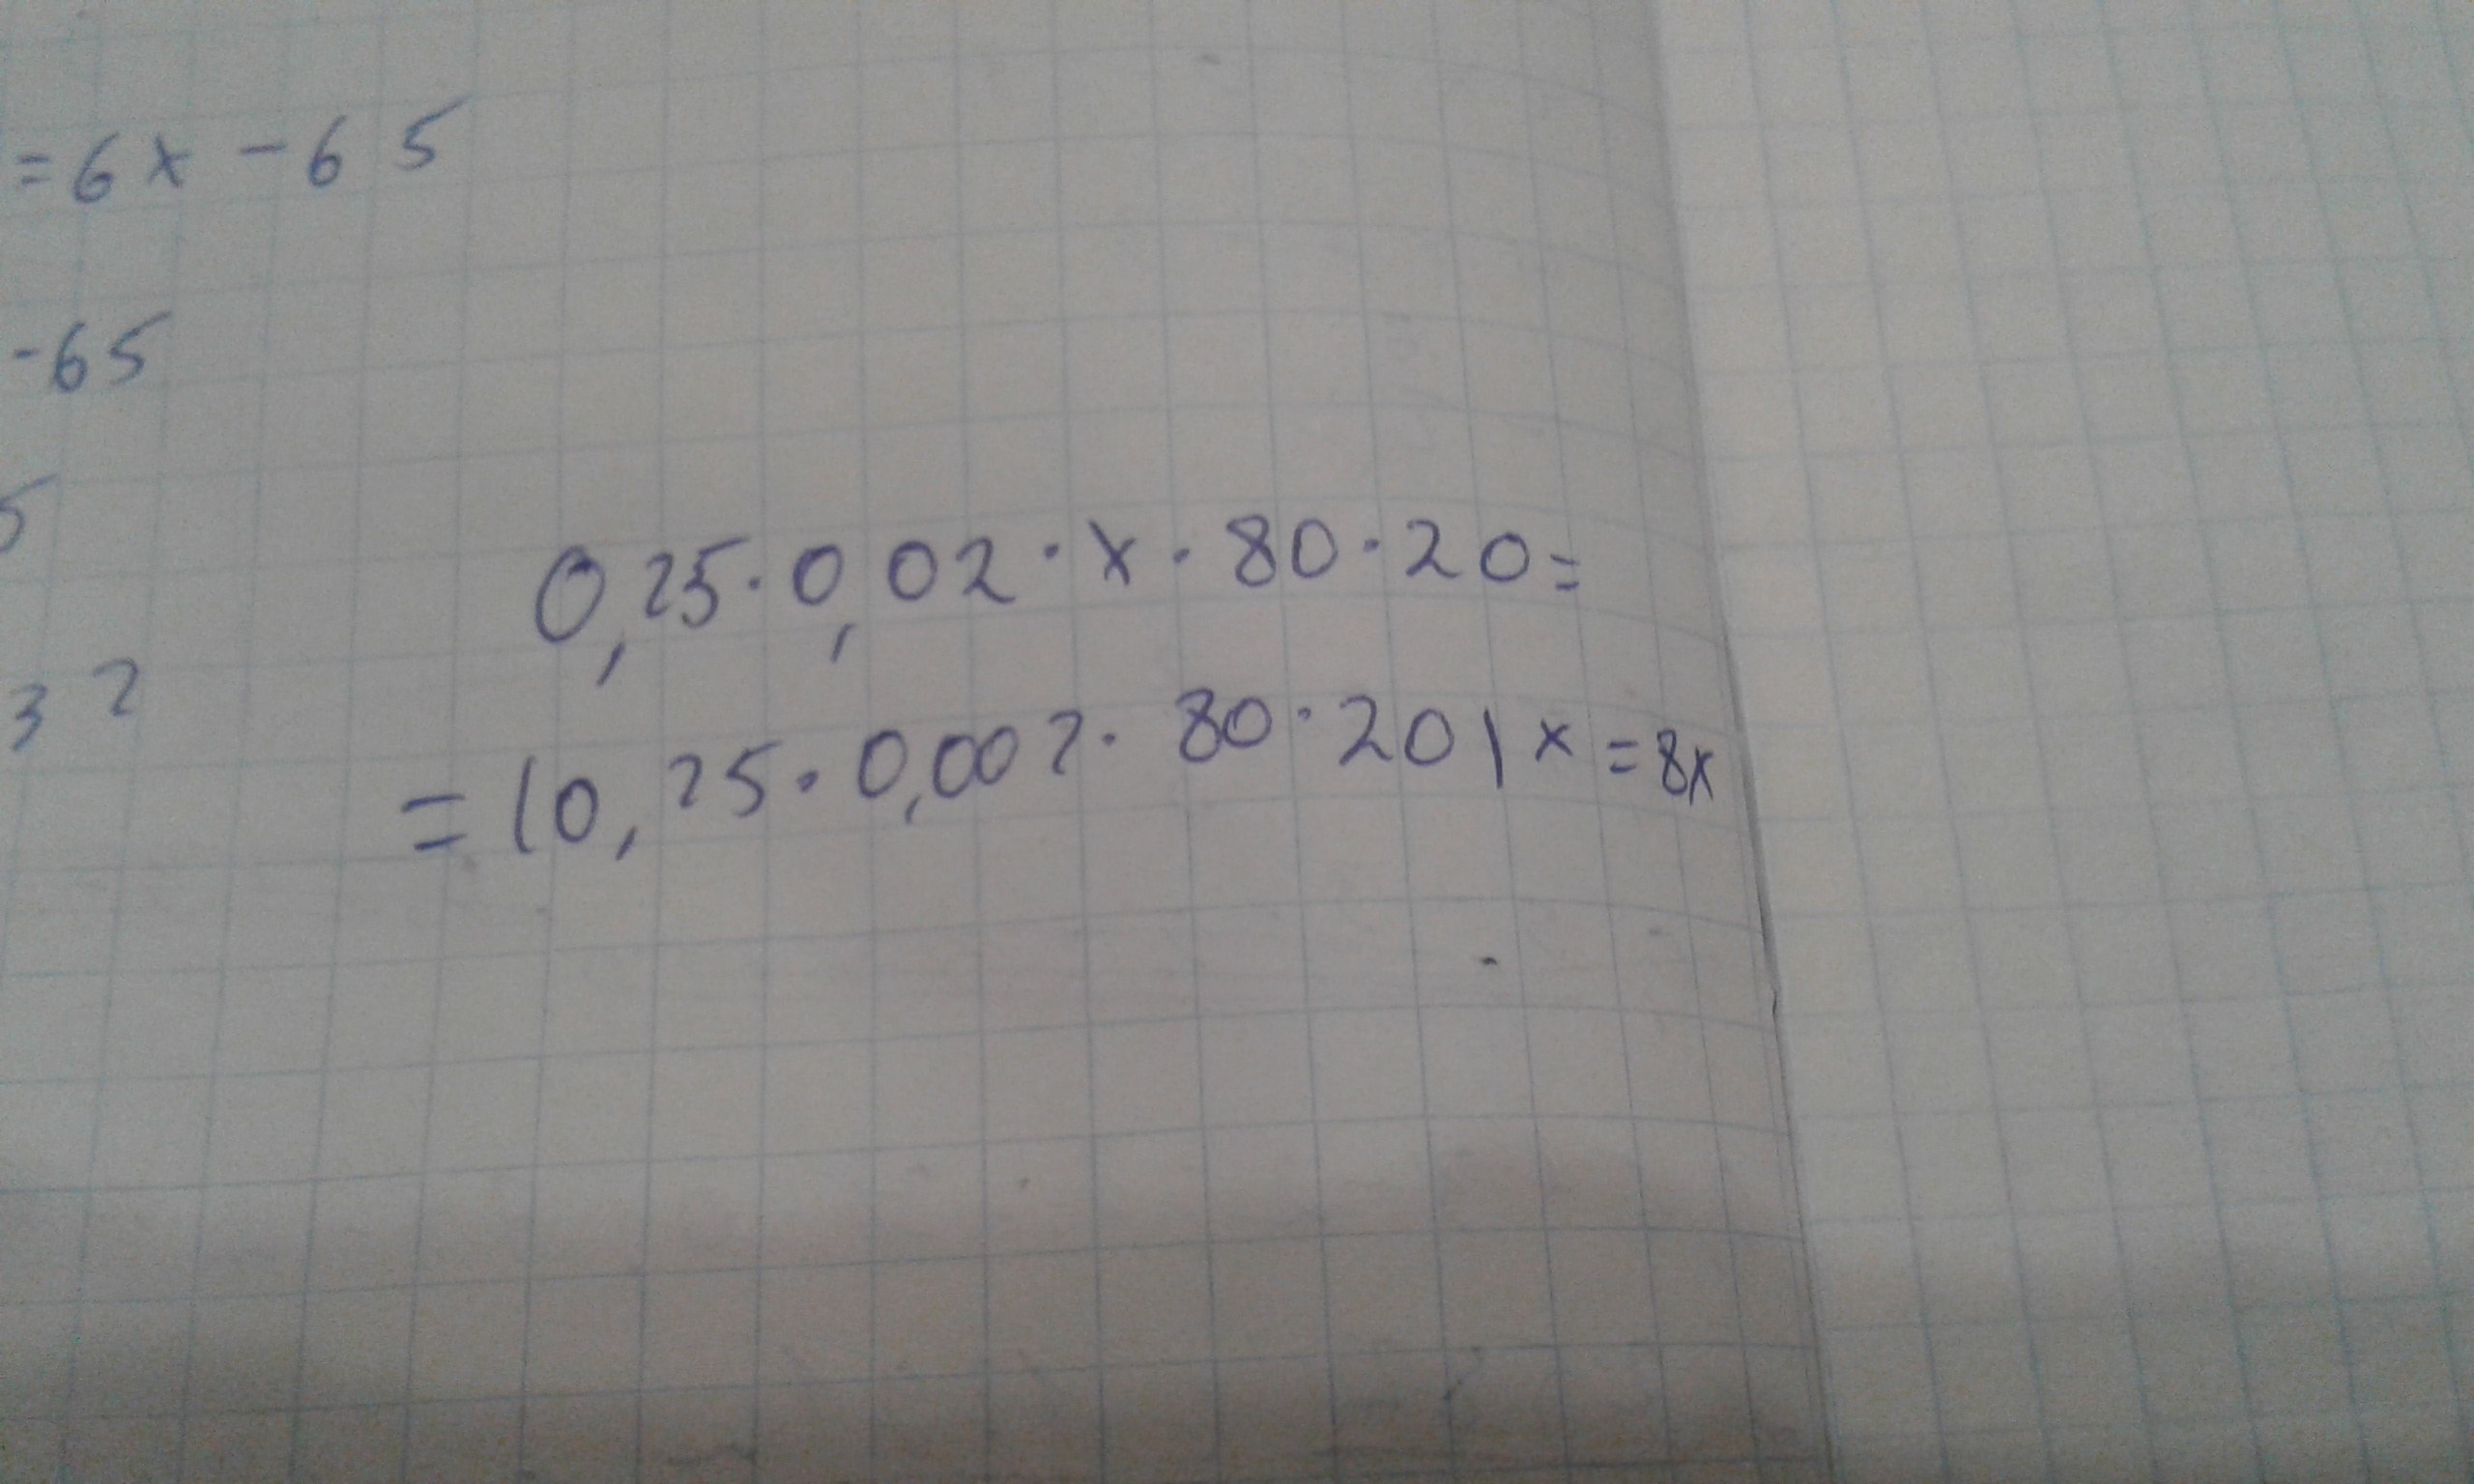 =6x -65
-65
5
32
0,25·0,02·x·80·20=
=(0,25·0,002·80·20)x=8x